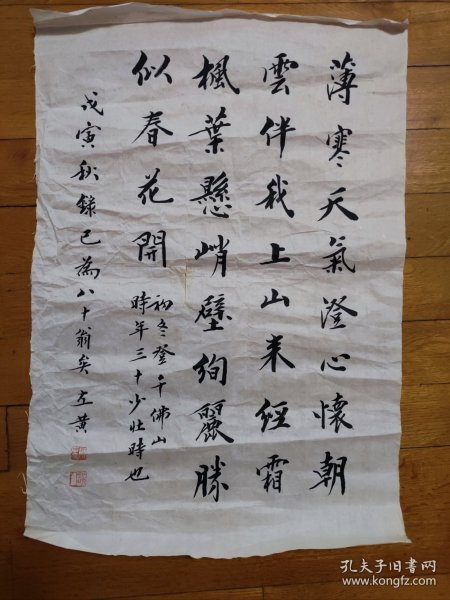 薄寒天氣澄心懷朝
雲伴我上山来經霜
楓葉懸峭壁絢麗勝
似春花開
初冬登千佛山
時年三十少壯時也
戊寅秋錄已為八十翁矣 左黄
孔夫子旧书网
www.kongfz.com